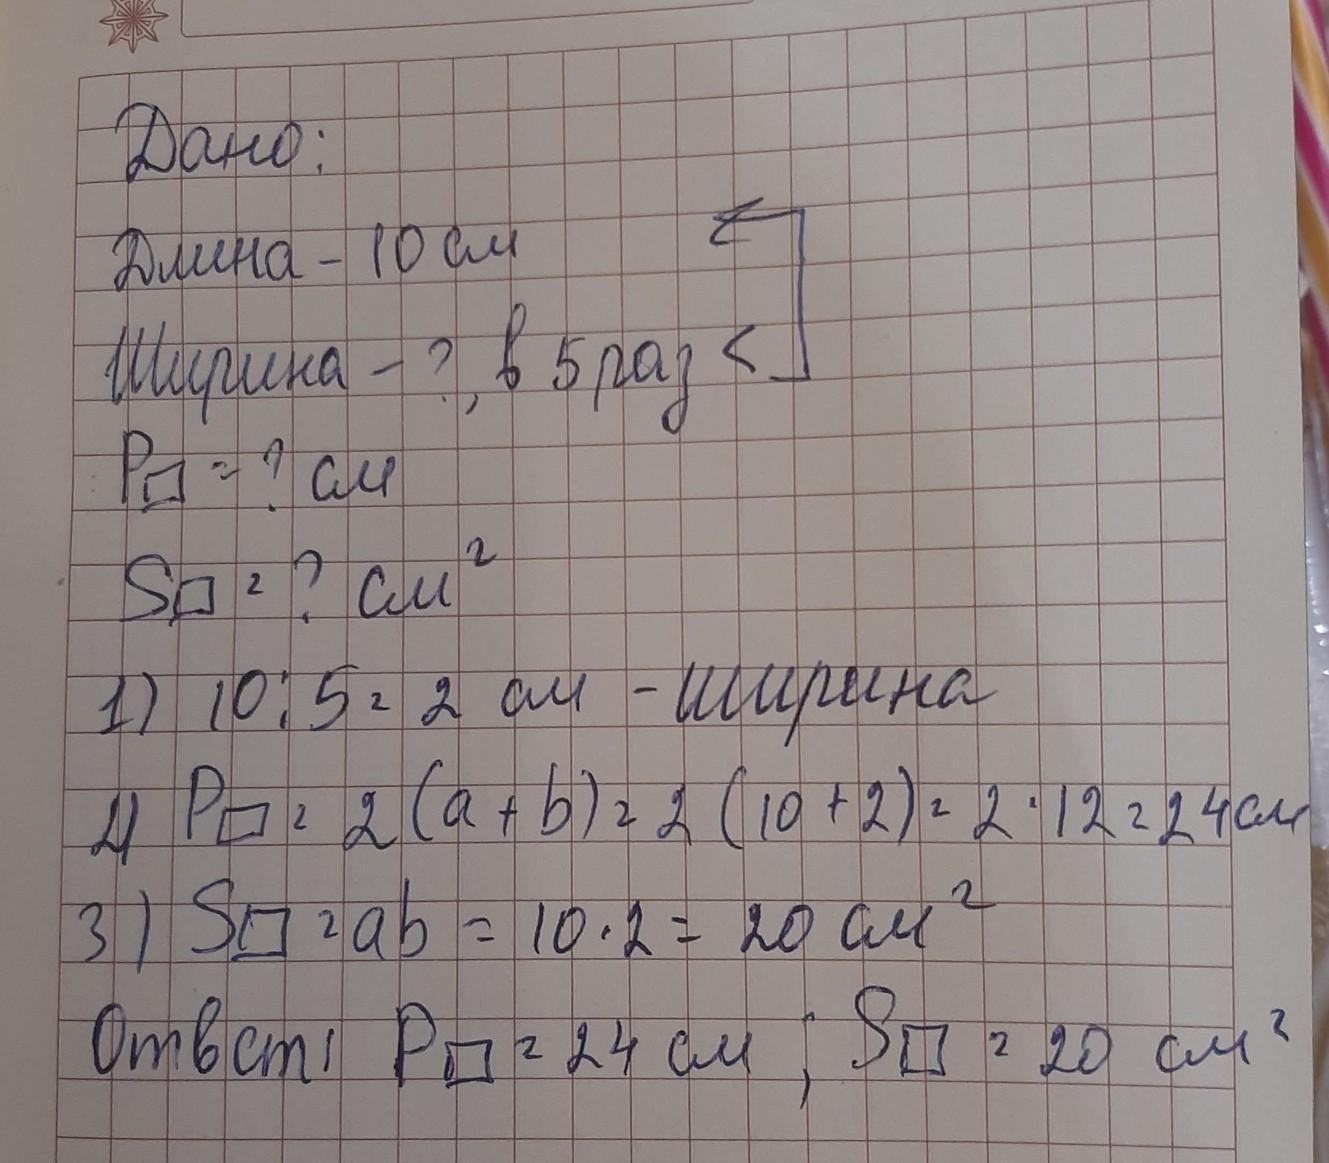 Дано:
Длина - 10 см
Ширина - ?, в 5 раз <
P□ = ? см
S□ = ? см²
1) 10 : 5 = 2 см - ширина
2) P□ = 2 (a + b) = 2 (10 + 2) = 2 · 12 = 24 см
3) S□ = ab = 10 · 2 = 20 см²
Ответ: P□ = 24 см ; S□ = 20 см²